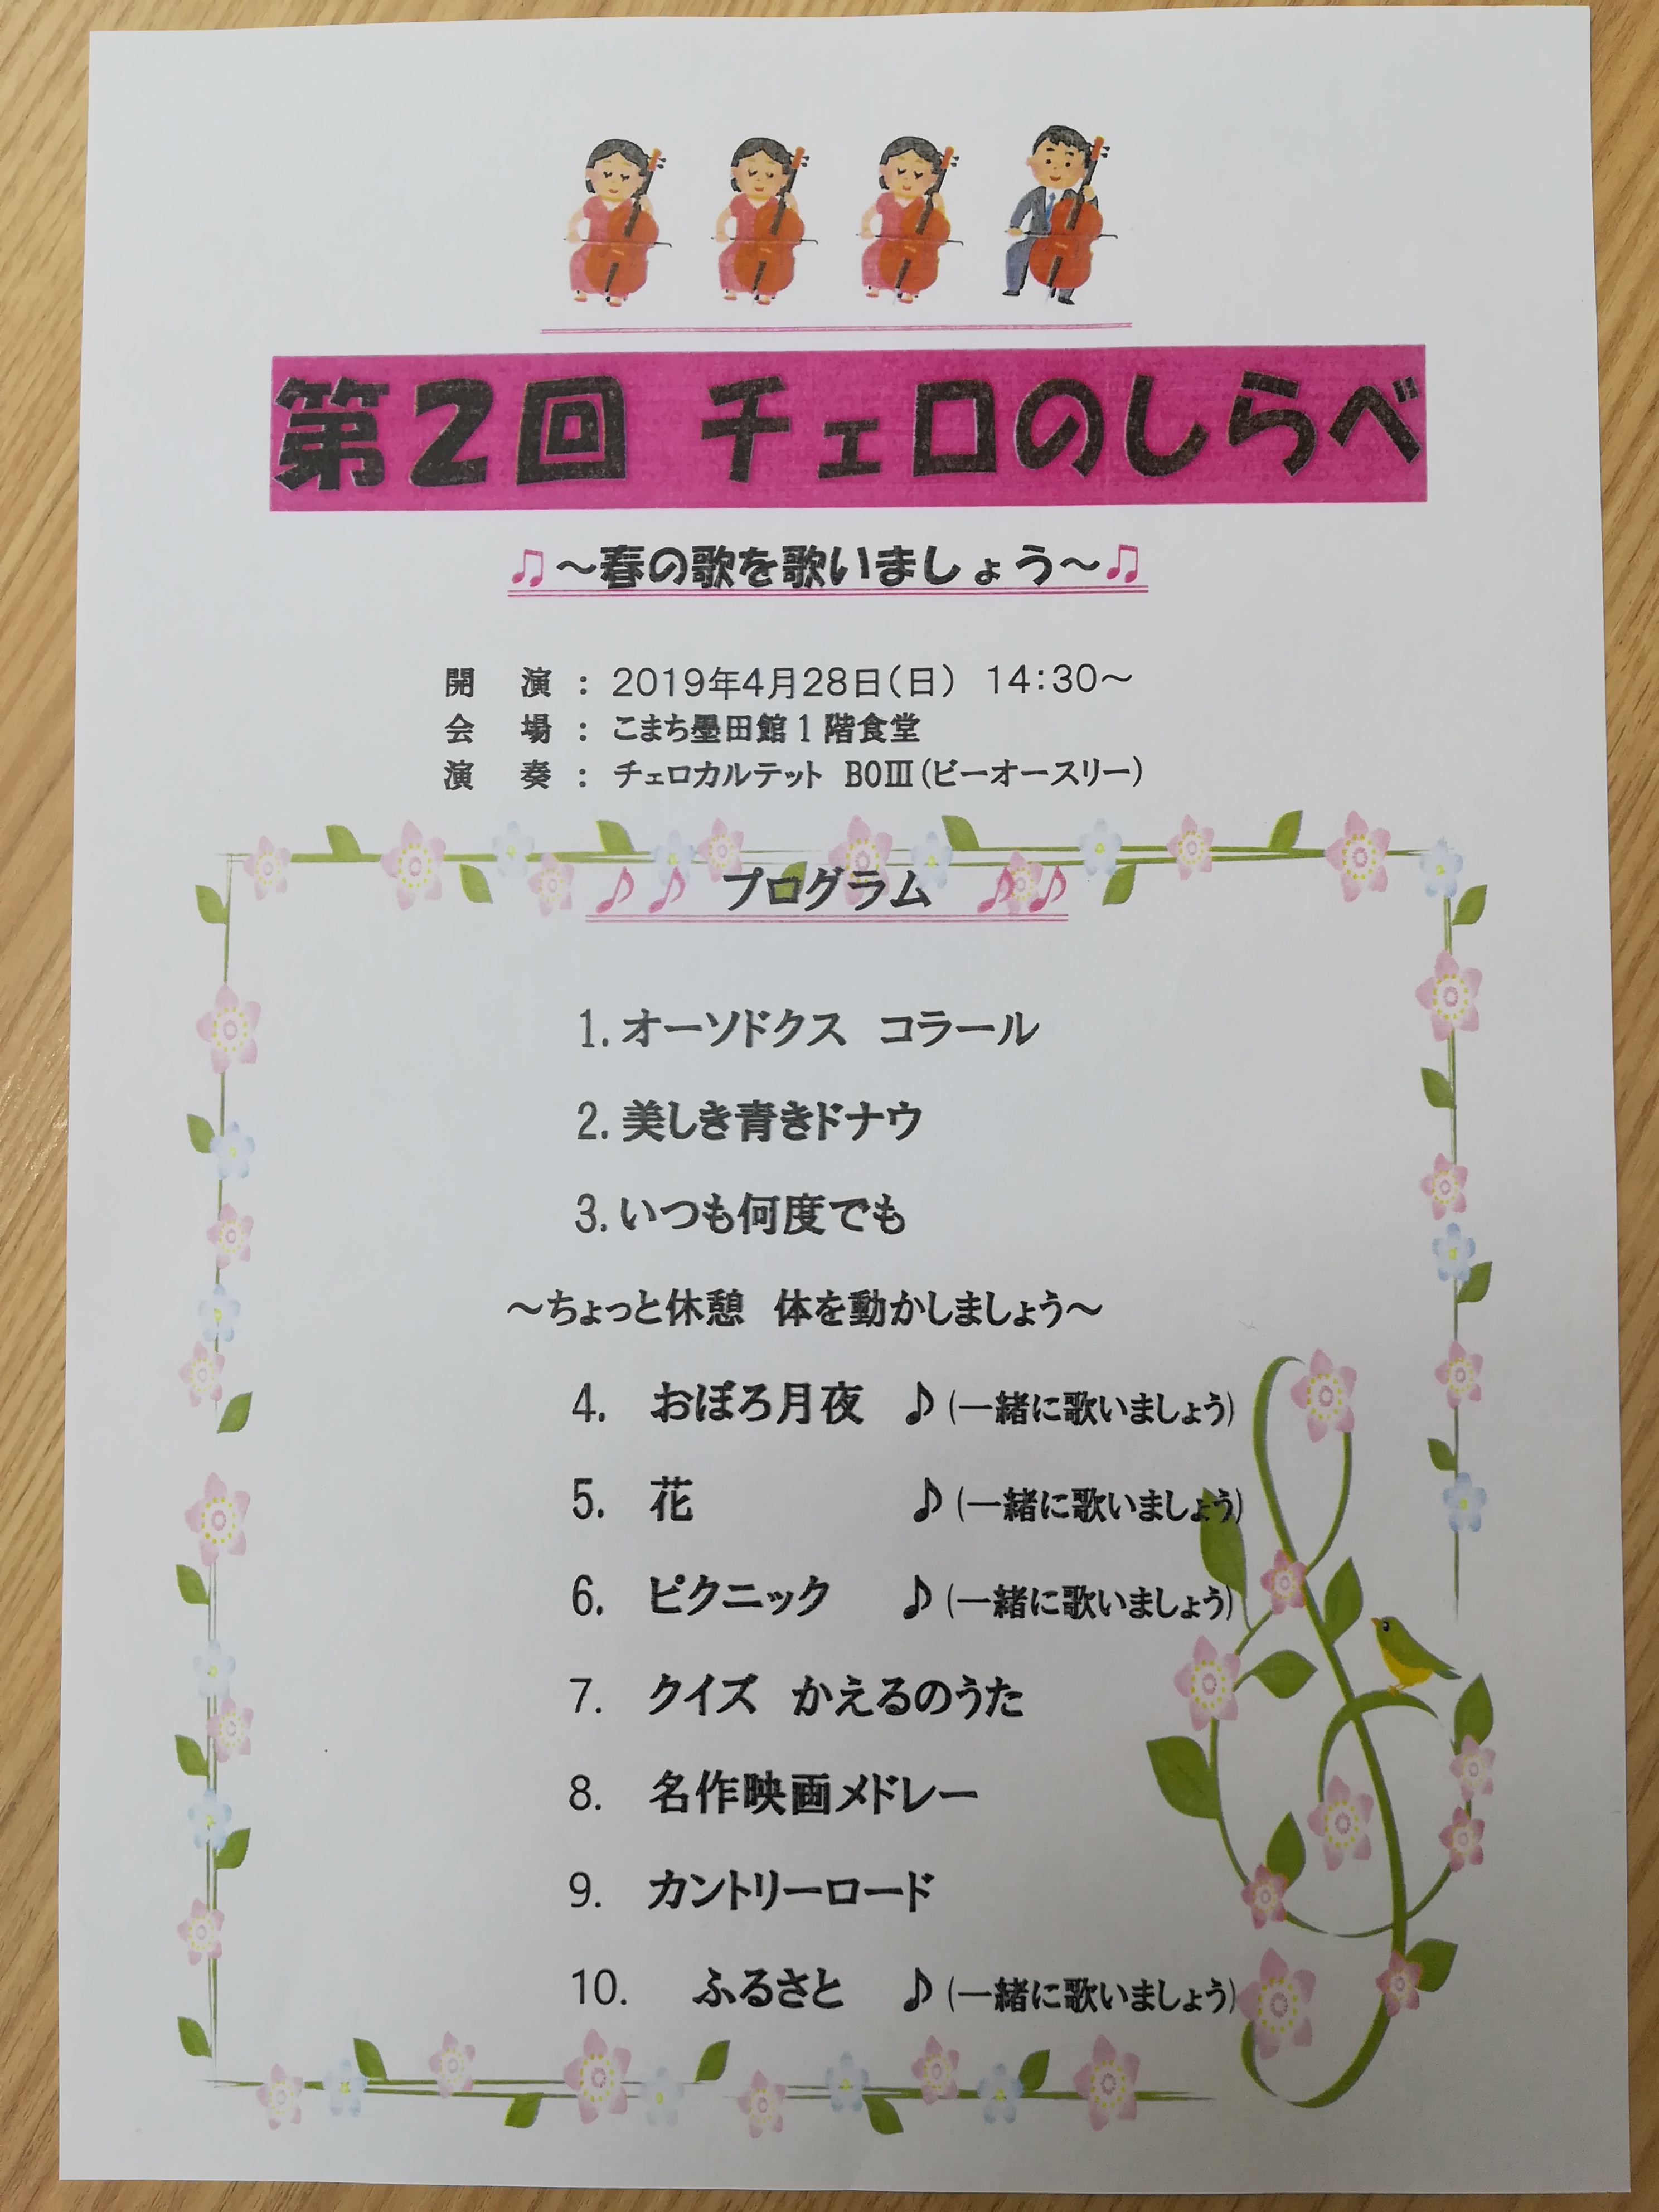 第2回 チェロのしらべ
♫～春の歌を歌いましょう～♫
開 演 : 2019年4月28日(日) 14:30～
会 場 : こまち墨田館1階食堂
演 奏 : チェロカルテット BOⅢ(ビーオースリー)
♪♪ プログラム ♪♪
1.オーソドクス コラール
2.美しき青きドナウ
3.いつも何度でも
～ちょっと休憩 体を動かしましょう～
4. おぼろ月夜 ♪(一緒に歌いましょう)
5. 花 ♪(一緒に歌いましょう)
6. ピクニック ♪(一緒に歌いましょう)
7. クイズ かえるのうた
8. 名作映画メドレー
9. カントリーロード
10. ふるさと ♪(一緒に歌いましょう)